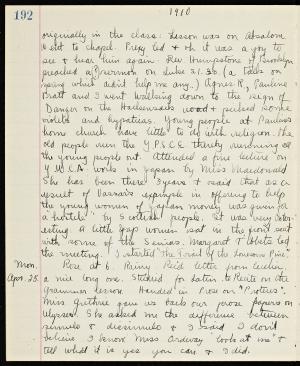 192
1910
originally in the class. Lesson was on Absalom
Went to chapel. Prexy led & oh it was a joy to
see & hear him again. Rev Humpstone of Brooklyn
preached a sermon on Luke 21.30 (a talk on
which didn't help me any.) Agnes R, Pauline
Pratt and I went walking down to the Sign of
Danger on the road & picked some
violets and hepaticas. Young people at Pauline's
home church have little to do with religion. The
old people run the Y.P.S.C.E. thereby running
the young people out. Attended a fine lecture on
Y.W.C.A. work in Japan by Miss Macdonald
She has been there 5 years & said that as a
result of Vassar's expense in offering to help
the young women of Japan money was given for
a "hostel" by Scottish people. It was very inter-
esting. A little Jap women sat in the front seat
with some of the Seniors. Margaret led
the meeting. I started "The Trail of the Lonesome Pine".
Mon.
Apr. 25.
Rose at 6. Rainy. Rec'd letter from
a nice long one. Studied for Latin & Recite on the
Grammar lesson. Handed in Rev on "Proteus".
Miss Guthrie gave us back our prose papers on
Ulysses. She asked me the difference between
simulo & dissimulo & I said I don't
believe I know Miss Ordway looks at me &
tell what it is yes you can & I did.